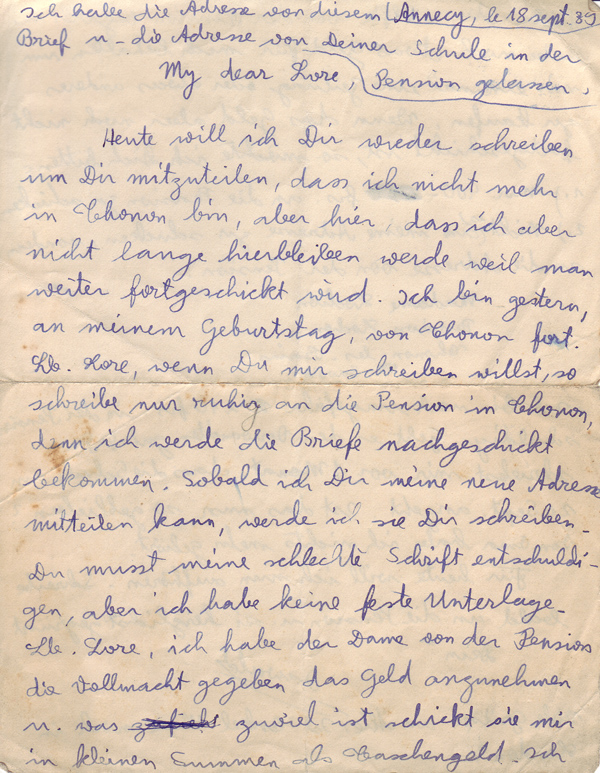 Ich habe die Adresse von diesem
Annecy, le 18 sept. 39
Brief u- die Adresse von Deiner Schule in der
My dear Lore,
Pension gelassen.
Heute will ich Dir wieder schreiben
um Dir mitzuteilen, dass ich nicht mehr
in Thonon bin, aber hier, dass ich aber
nicht lange hierbleiben werde weil man
weiter fortgeschickt wird. Ich bin gestern,
an meinem Geburtstag, von Thonon fort.
Lb. Lore, wenn Du mir schreiben willst, so
schreibe nur ruhig an die Pension in Thonon,
denn ich werde die Briefe nachgeschickt
bekommen. Sobald ich Dir meine neue Adresse
mitteilen kann, werde ich sie Dir schreiben-
Du musst meine schlechte Schrift entschuldi-
gen, aber ich habe keine feste Unterlage-
Lb. Lore, ich habe der Dame von der Pension
die Vollmacht gegeben das Geld anzunehmen
u. was zuviel ist schickt sie mir
in kleinen Summen als Taschengeld- Ich